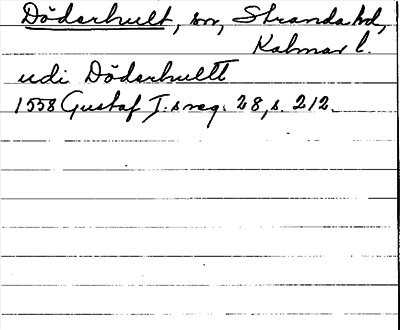 Döderhult, sn, Stranda hd,
Kalmar l.
udi Döderhultt
1558 Gustaf I:s reg. 28, s. 212.